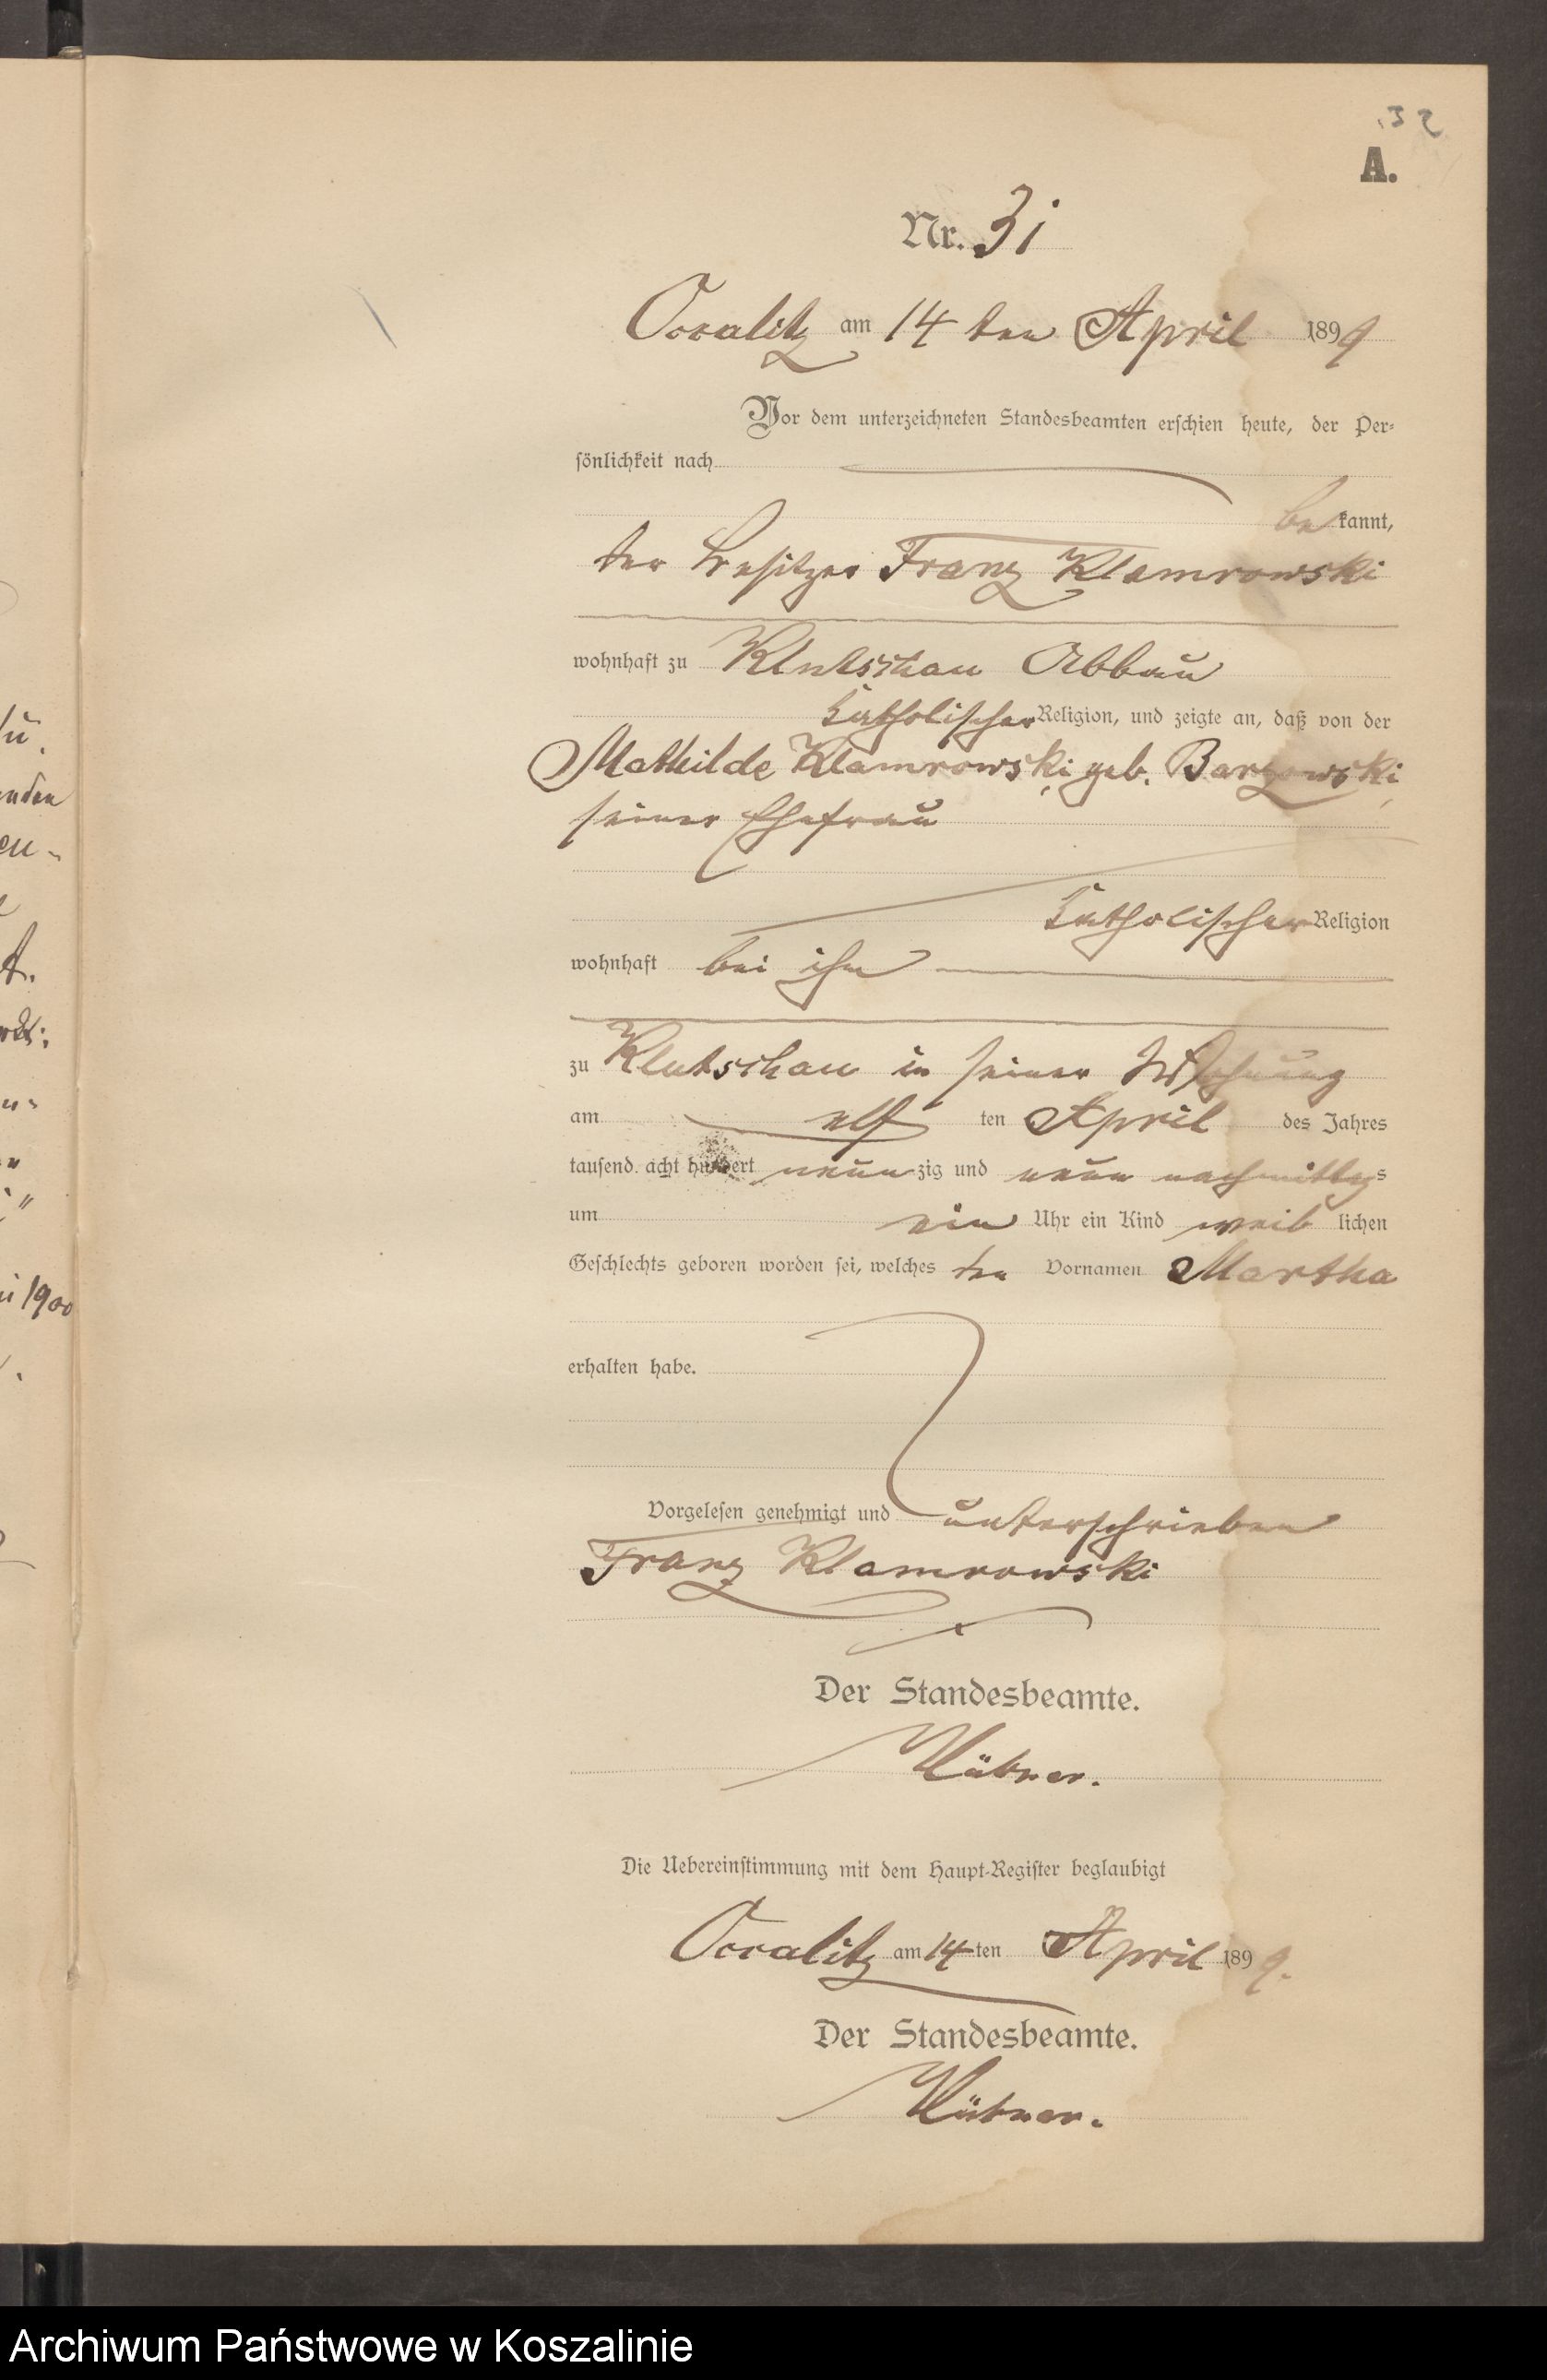 32
A.
Nr. 31
Occalitz am 14 ten April 1899
Vor dem unterzeichneten Standesbeamten erschien heute, der Per-
sönlichkeit nach
be kannt,
der Besitzer Franz Klamrowski
wohnhaft zu Klutschau Abbau
katholischer Religion, und zeigte an, daß von der
Mathilde Klamrowski, geb. Barzowski,
seiner Ehefrau
katholischer Religion
wohnhaft bei ihm
zu Klutschau in seiner Wohnung
am elf ten April des Jahres
tausend acht hundert neun zig und neun nachmittags
um ein Uhr ein Kind weib lichen
Geschlechts geboren worden sei, welches den Vornamen Martha
erhalten habe.
Vorgelesen genehmigt und unterschrieben
Franz Klamrowski
Der Standesbeamte.
Die Uebereinstimmung mit dem Haupt-Register beglaubigt
Occalitz am 14 ten April 1899.
Der Standesbeamte.
Archiwum Państwowe w Koszalinie